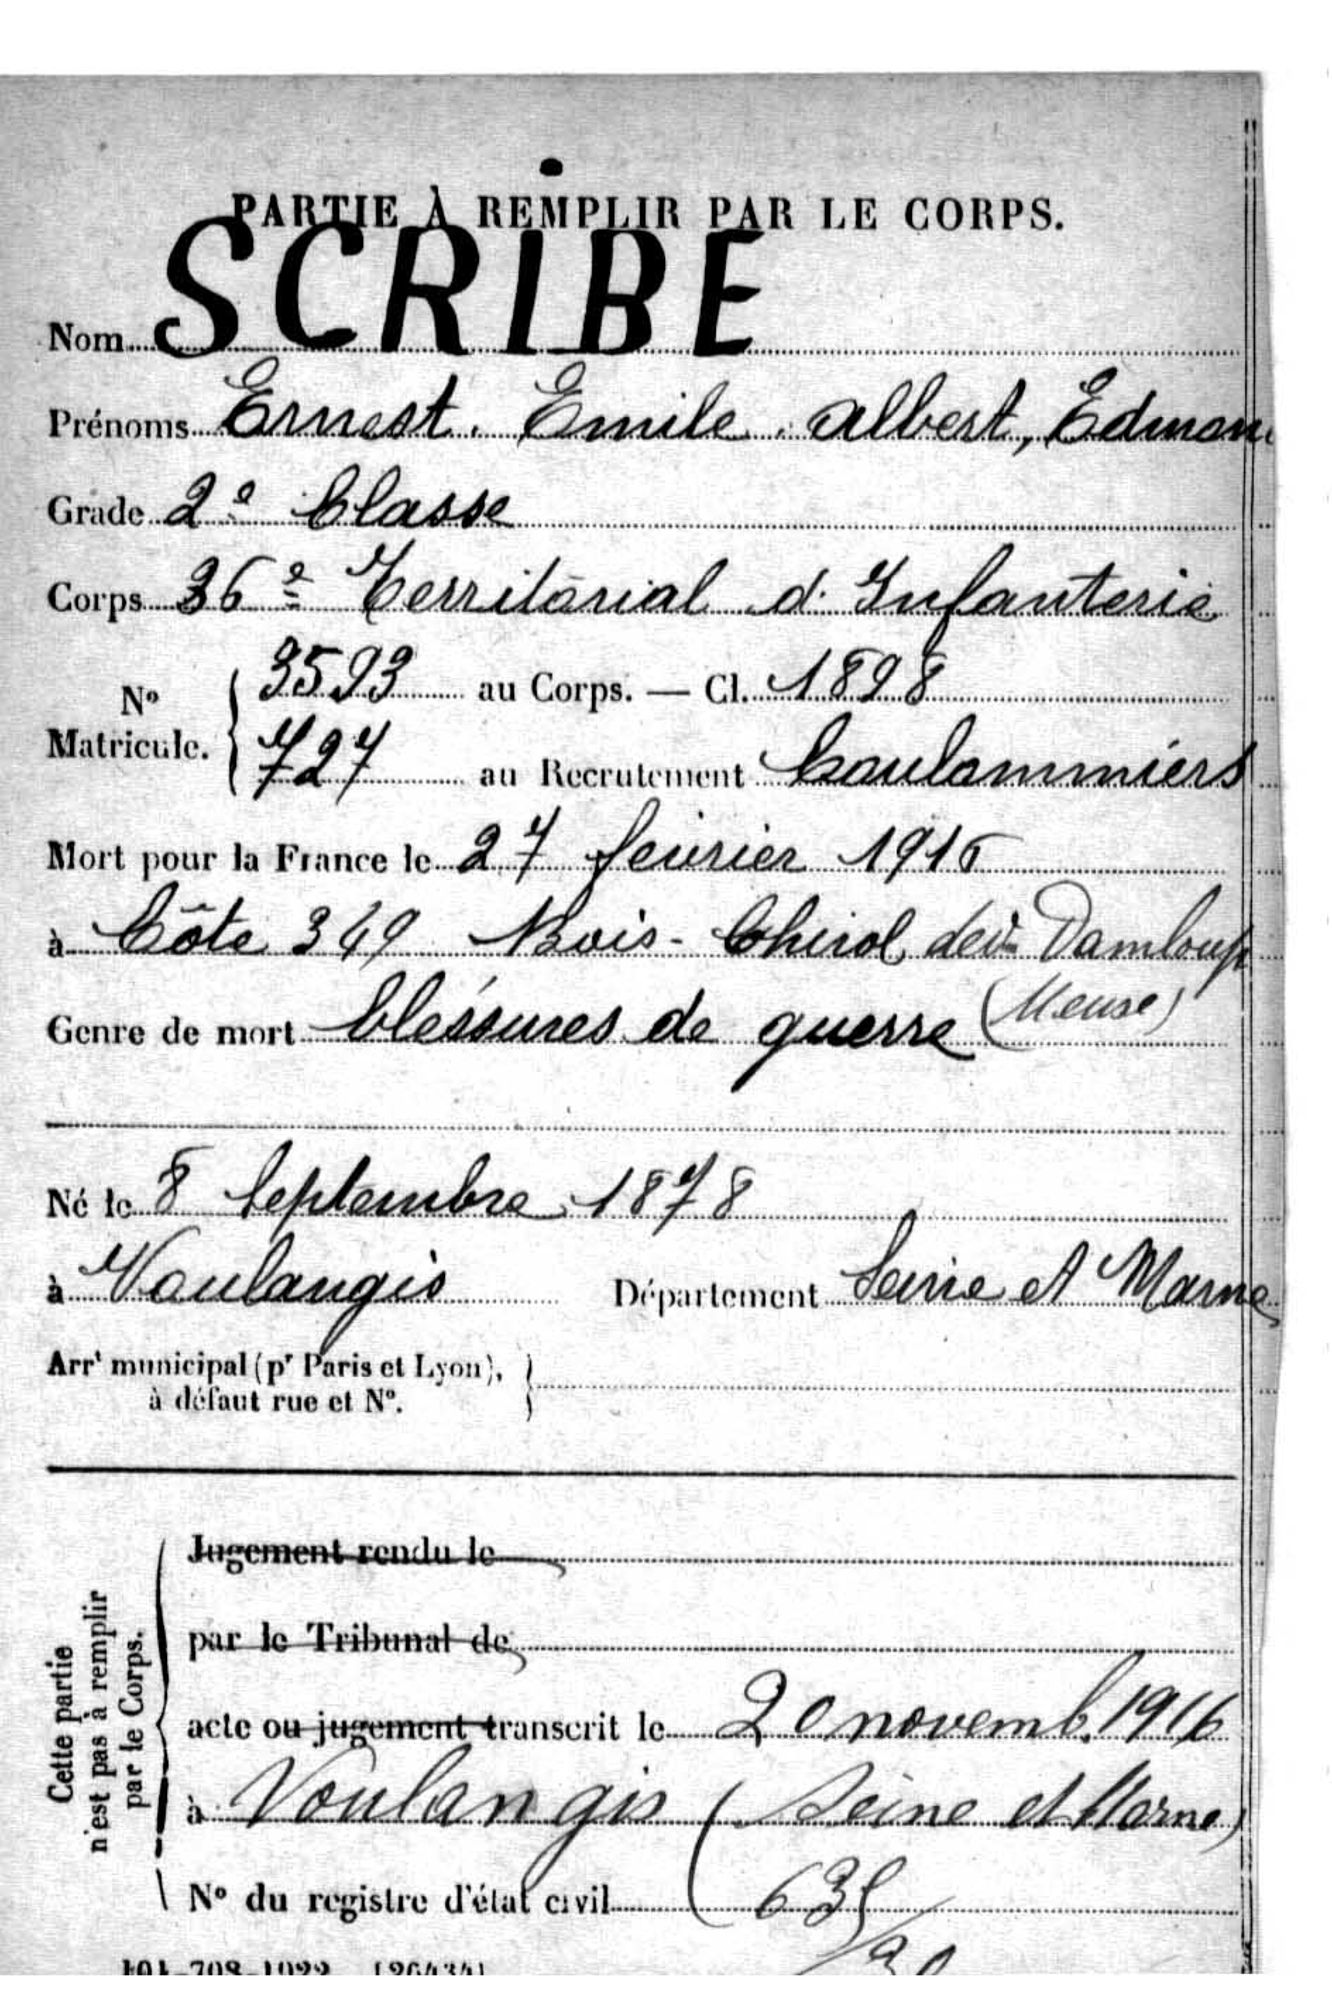 PARTIE À REMPLIR PAR LE CORPS.
Nom SCRIBE
Prénoms Ernest. Emile. Albert, Edmon
Grade 2e Classe
Corps 36e Territorial d. Infanterie
No Matricule. { 3593 au Corps. — Cl. 1898
727 au Recrutement Coulommiers
Mort pour la France le 27 février 1916
à Côte 349 Bois- Chirol devt Damloup
(Meuse)
Genre de mort bléssures de guerre
Né le 8 Septembre 1878
à Voulangis Département Seine et Marne
Arrt municipal (pr Paris et Lyon),
à défaut rue et No.
Cette partie
n'est pas à remplir
par le Corps.
Jugement rendu le
par le Tribunal de
acte ou jugement transcrit le 20 novemb. 1916
à Voulangis (Seine et Marne)
No du registre d'état civil 635/
101-708-1922 [26434]